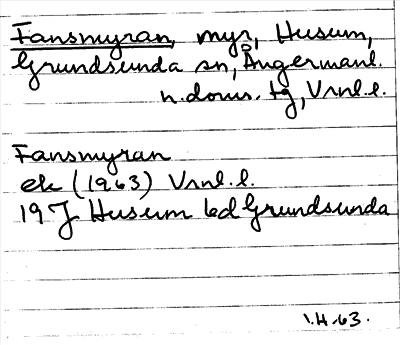 Fansmyran, myr, Husum,
Grundsunda sn, Ångermanl.
n. doms. tg, Vrnl. l.
Fansmyran
ek (1963) Vrnl. l.
19 J Husum bd Grundsunda
I.H.63.